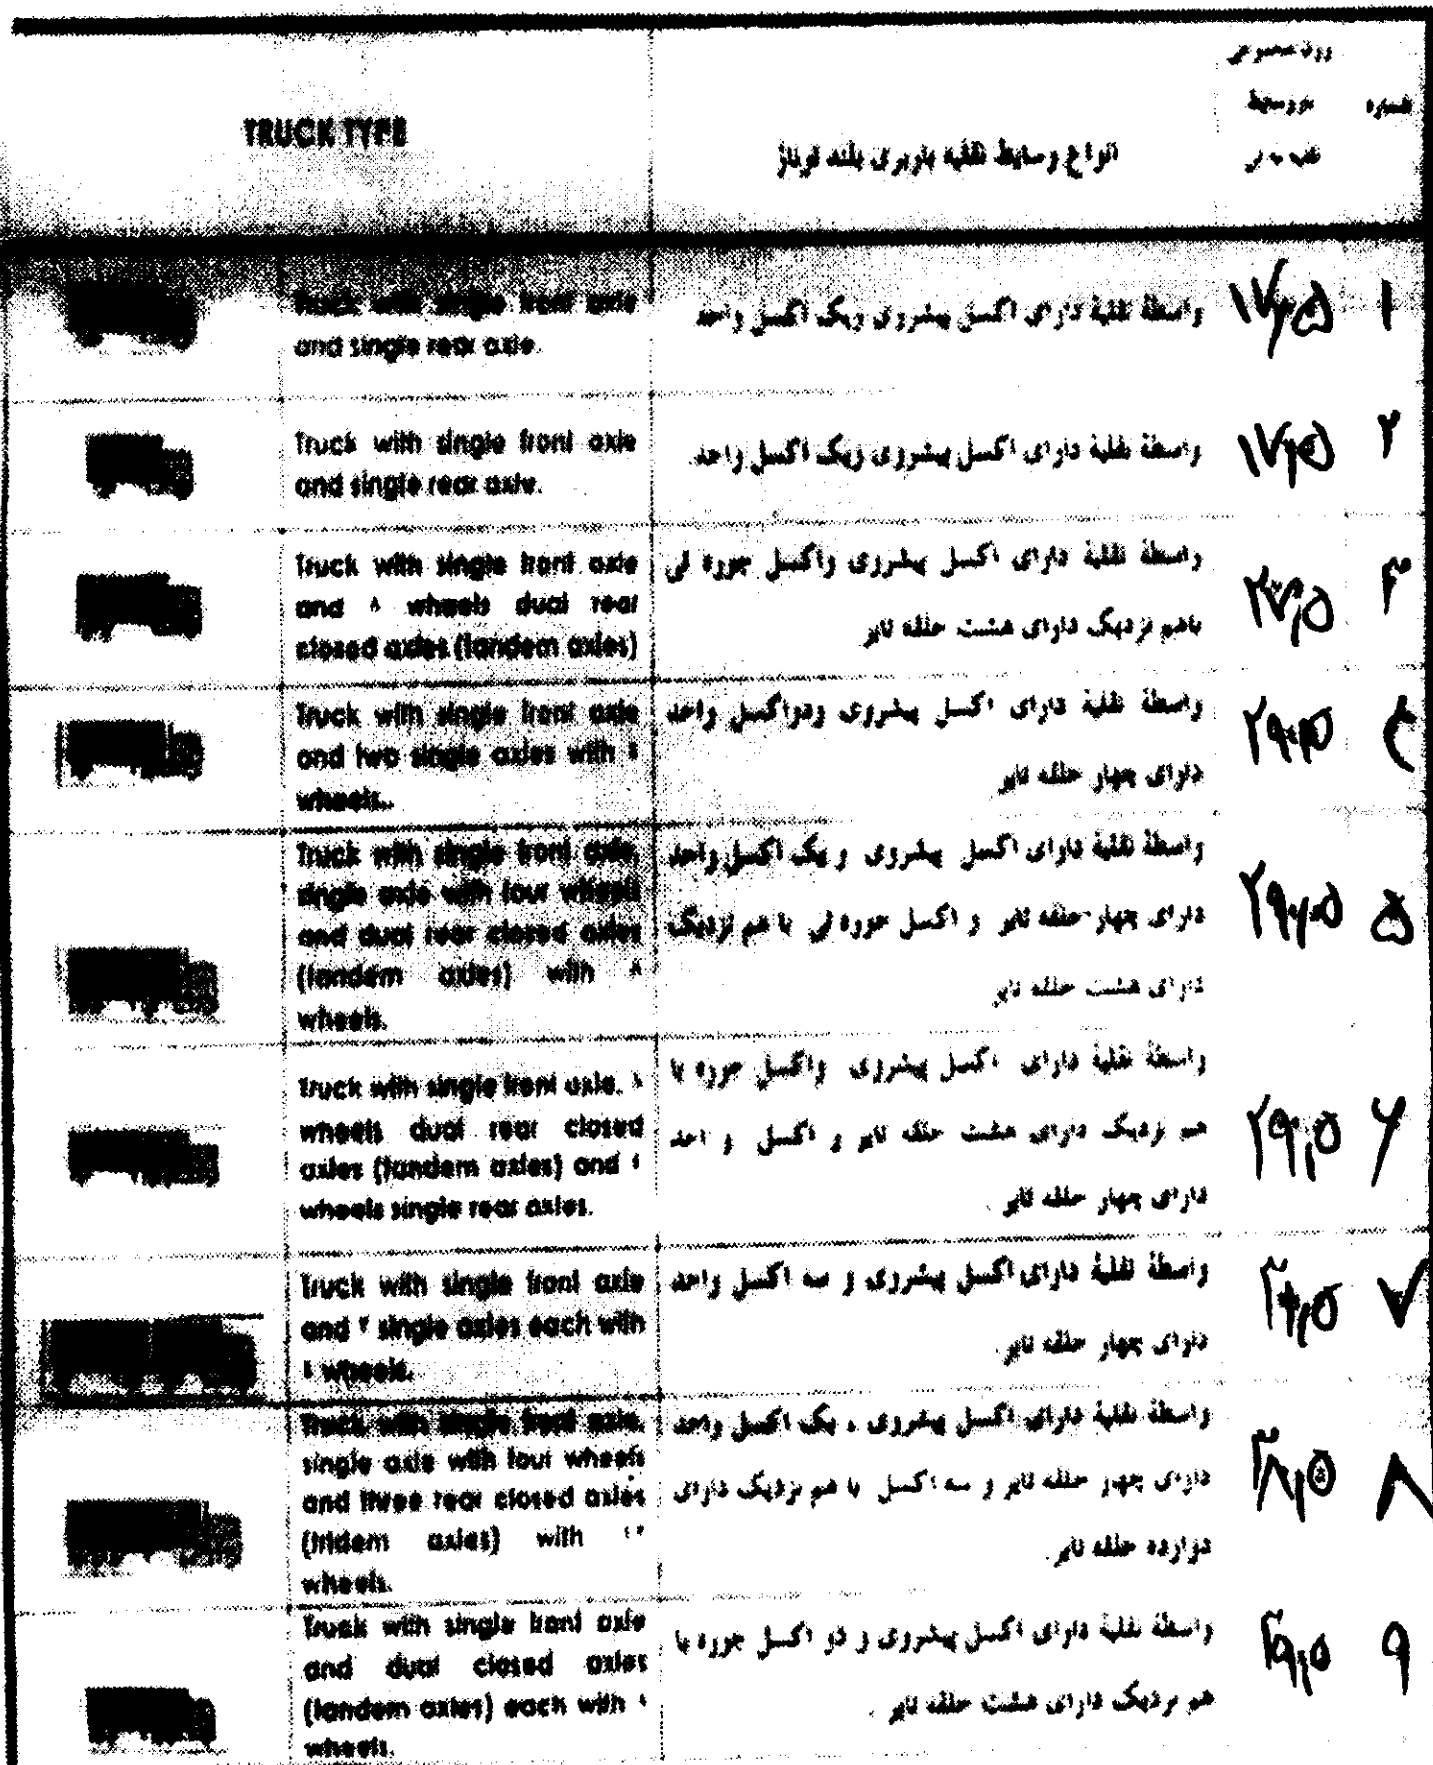 TRUCK TYPE
انواع وسایط نقلیه باربری بلند توناژ
شماره
Truck with single front axle
and single rear axle.
واسطهٔ نقلیهٔ دارای اکسل پیشروی ویک اکسل واحد
۱۷٫۵
۱
Truck with single front axle
and single rear axle.
واسطهٔ نقلیهٔ دارای اکسل پیشروی ویک اکسل واحد.
۱۷٫۵
۲
Truck with single front axle
and ۸ wheels dual rear
closed axles (tandem axles)
واسطهٔ نقلیهٔ دارای اکسل پیشروی واکسل جوره ئی
باهم نزدیک دارای هشت حلقه تایر
۲۷٫۵
۳
Truck with single front axle
and two single axles with
wheels..
واسطهٔ نقلیهٔ دارای اکسل پیشروی ودواکسل واحد
دارای چهار حلقه تایر
۲۹٫۵
۴
Truck with single front axle,
single axle with four wheels
and dual rear closed axles
(tandem axles) with ۸
wheels.
واسطهٔ نقلیهٔ دارای اکسل پیشروی و یک اکسل واحد
دارای چهار حلقه تایر و اکسل جوره ئی با هم نزدیک
دارای هشت حلقه تایر
۲۹٫۵
۵
Truck with single front axle. ۸
wheels dual rear closed
axles (tandem axles) and ٤
wheels single rear axles.
واسطهٔ نقلیهٔ دارای اکسل پیشروی واکسل جوره با
هم نزدیک دارای هشت حلقه تایر و اکسل و احد
دارای چهار حلقه تایر .
۲۹٫۵
۶
Truck with single front axle
and ۳ single axles each with
wheels.
واسطهٔ نقلیهٔ دارای اکسل پیشروی و سه اکسل واحد
دارای چهار حلقه تایر.
۷
Truck with single front axle,
single axle with four wheels
and three rear closed axles
(tridem axles) with ۱۲
wheels.
واسطهٔ نقلیهٔ دارای اکسل پیشروی ، یک اکسل واحد
دارای چهار حلقه تایر و سه اکسل با هم نزدیک دارای
دوازده حلقه تایر.
۳۸٫۵
۸
Truck with single front axle
and dual closed axles
(tandem axles) each with
wheels.
واسطهٔ نقلیهٔ دارای اکسل پیشروی و دو اکسل جوره با
هم نزدیک دارای هشت حلقه تایر .
۹